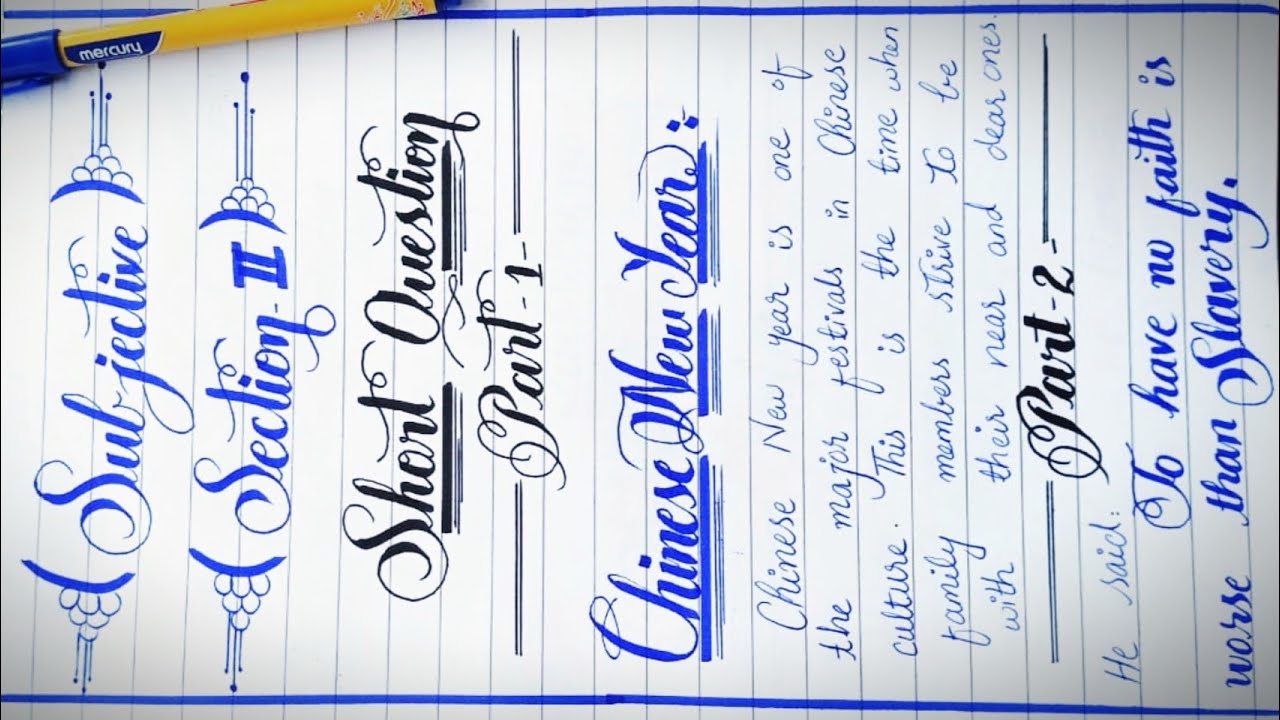 mercury
(Sub-jective)
(Section-II)
Short Question
Part-1-
Chinese New Year:
Chinese New year is one of
the major festivals in Chinese
culture. This is the time when
family members strive to be
with their near and dear ones.
Part-2-
He said:
To have no faith is
worse than Slavery.